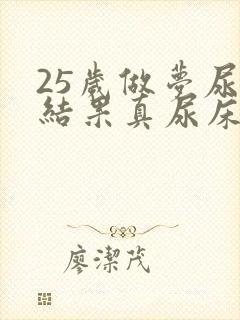 25歲做夢尿
結果真尿床
廖潔茂